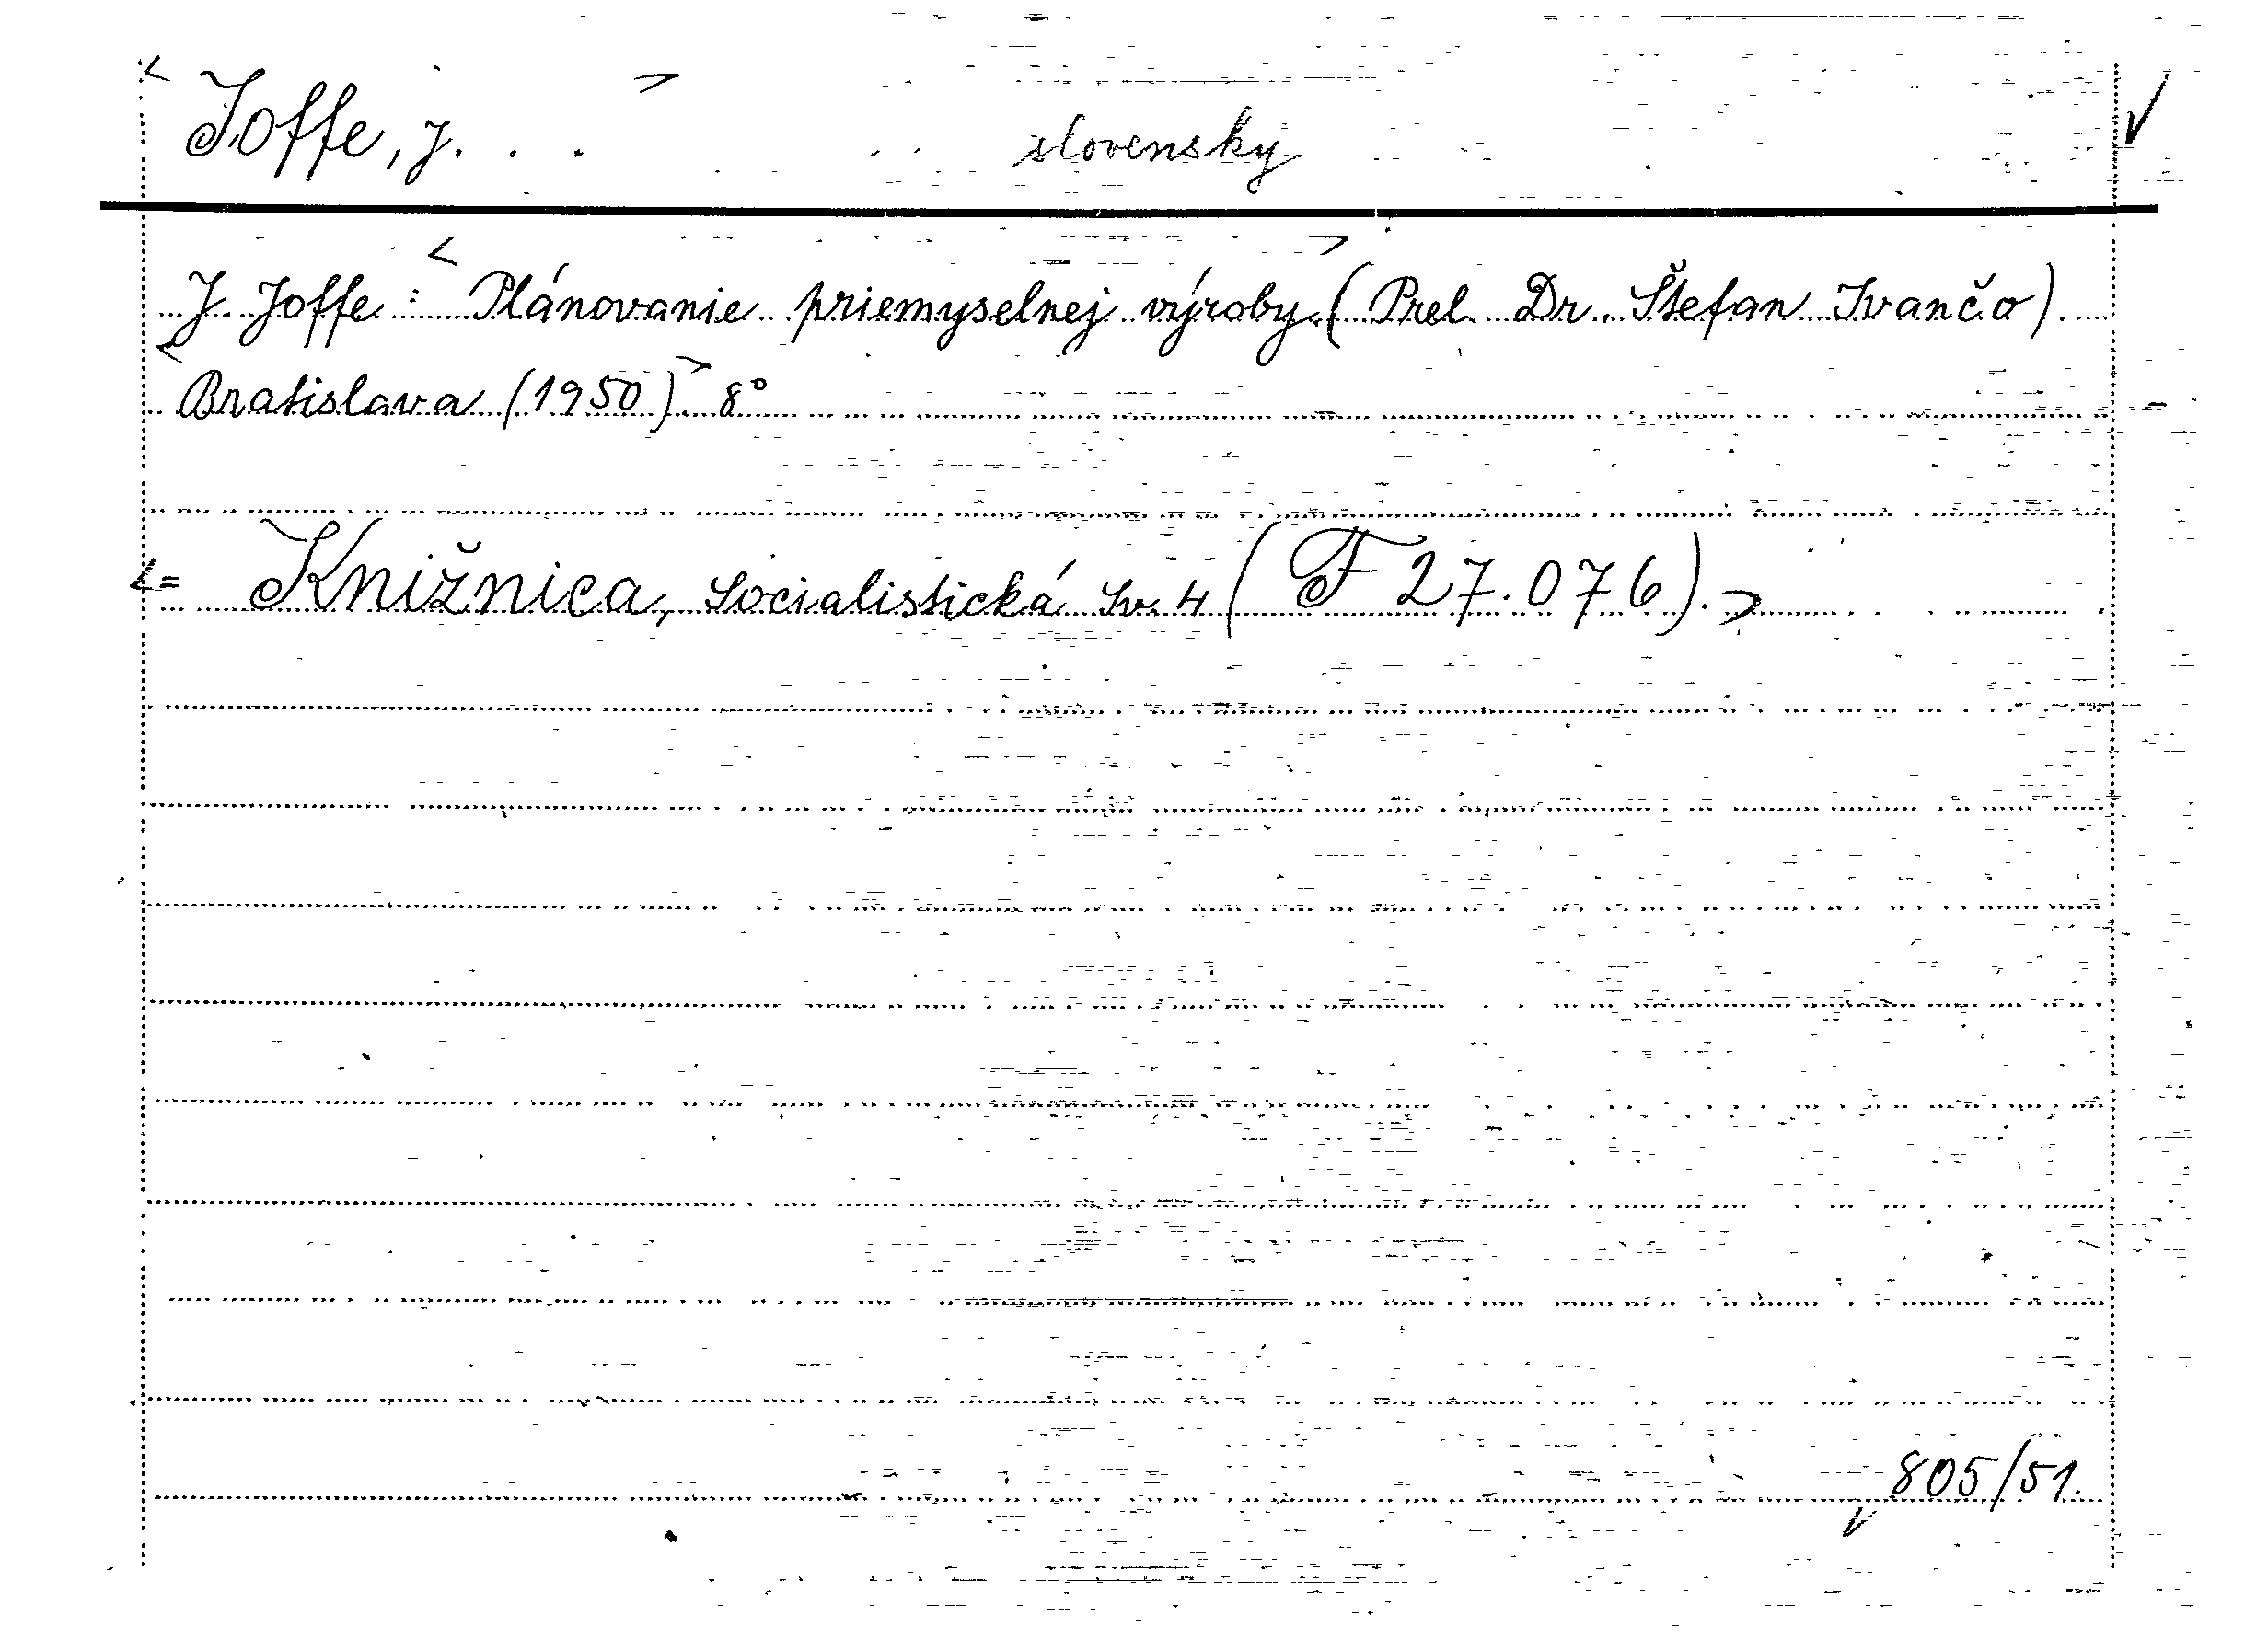 < Joffe, J. . . > slovensky ✓
J. Joffe: <Plánovanie priemyselnej výroby.> (Prel. Dr. Štefan Ivančo).
<Bratislava (1950).> 8°
<= Knižnica, Socialistická Sv. 4 (F 27.076).>
805/51.